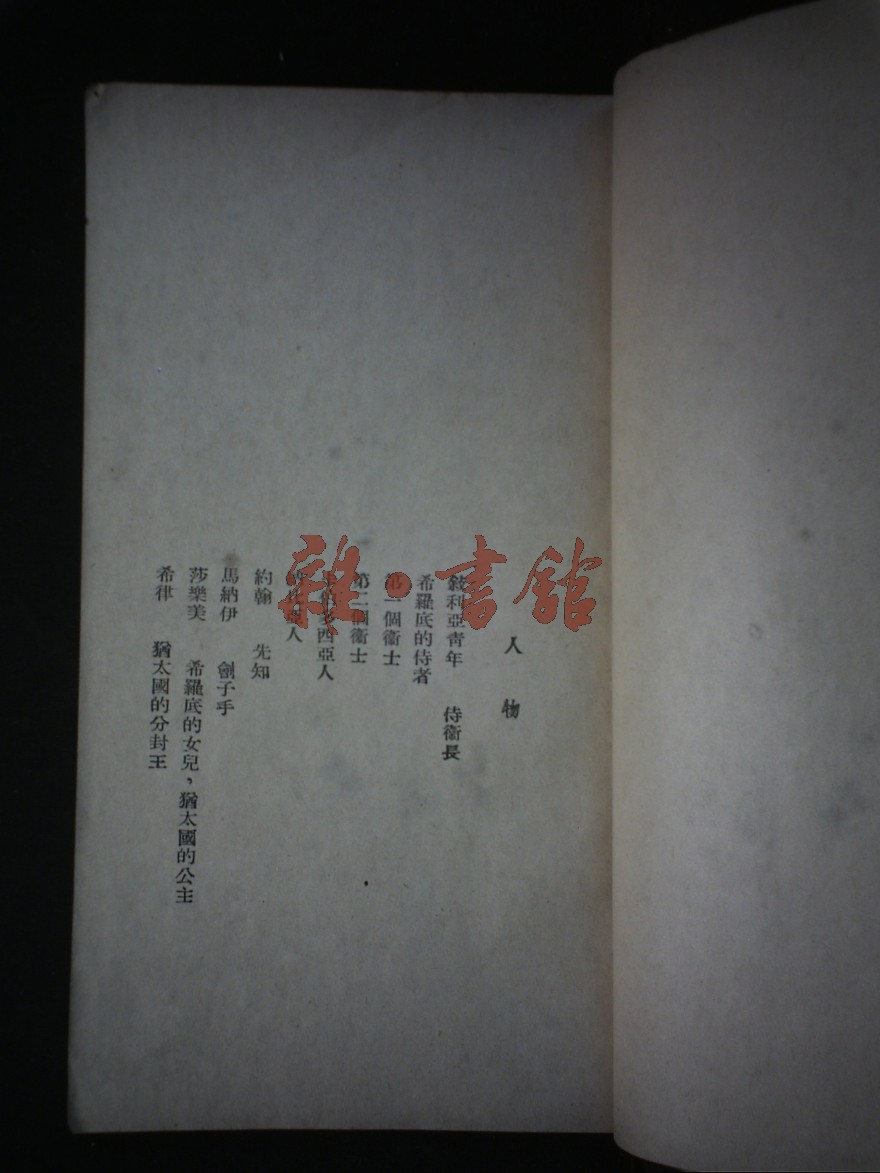 人物
敍利亞青年 侍衞長
希羅底的侍者
第一個衞士
第二個衞士
西亞人
亞人
約翰 先知
馬納伊 劊子手
莎樂美 希羅底的女兒，猶太國的公主
希律 猶太國的分封王
雜·書館